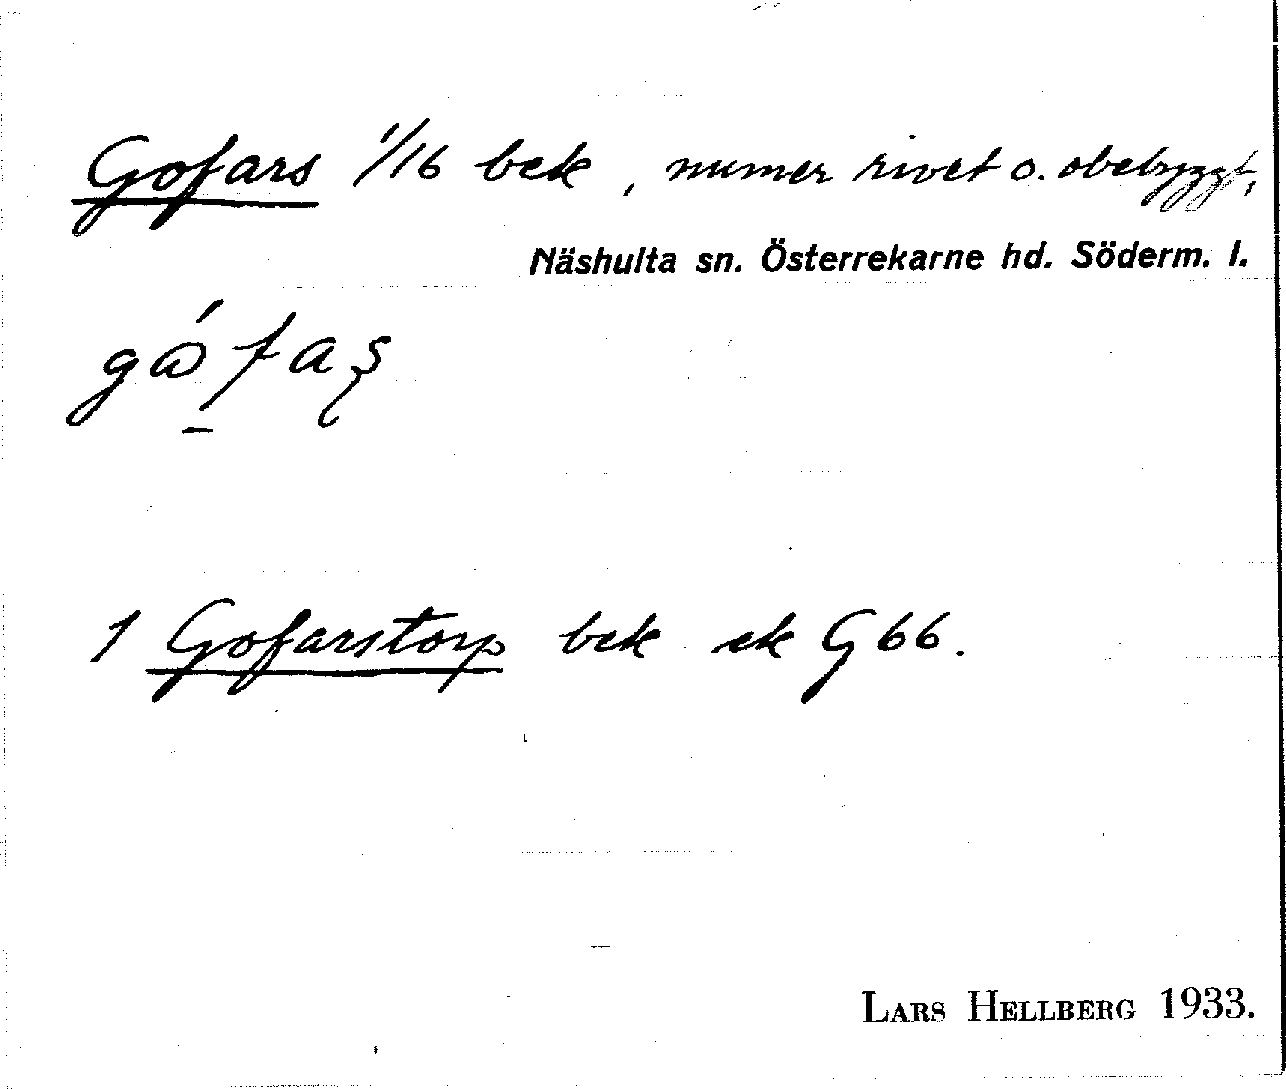 Gofars 1/16 bek, numer rivet o. obebyggt,
Näshulta sn. Österrekarne hd. Söderm. l.
1 Gofarstorp bek ek G66.
LARS HELLBERG 1933.